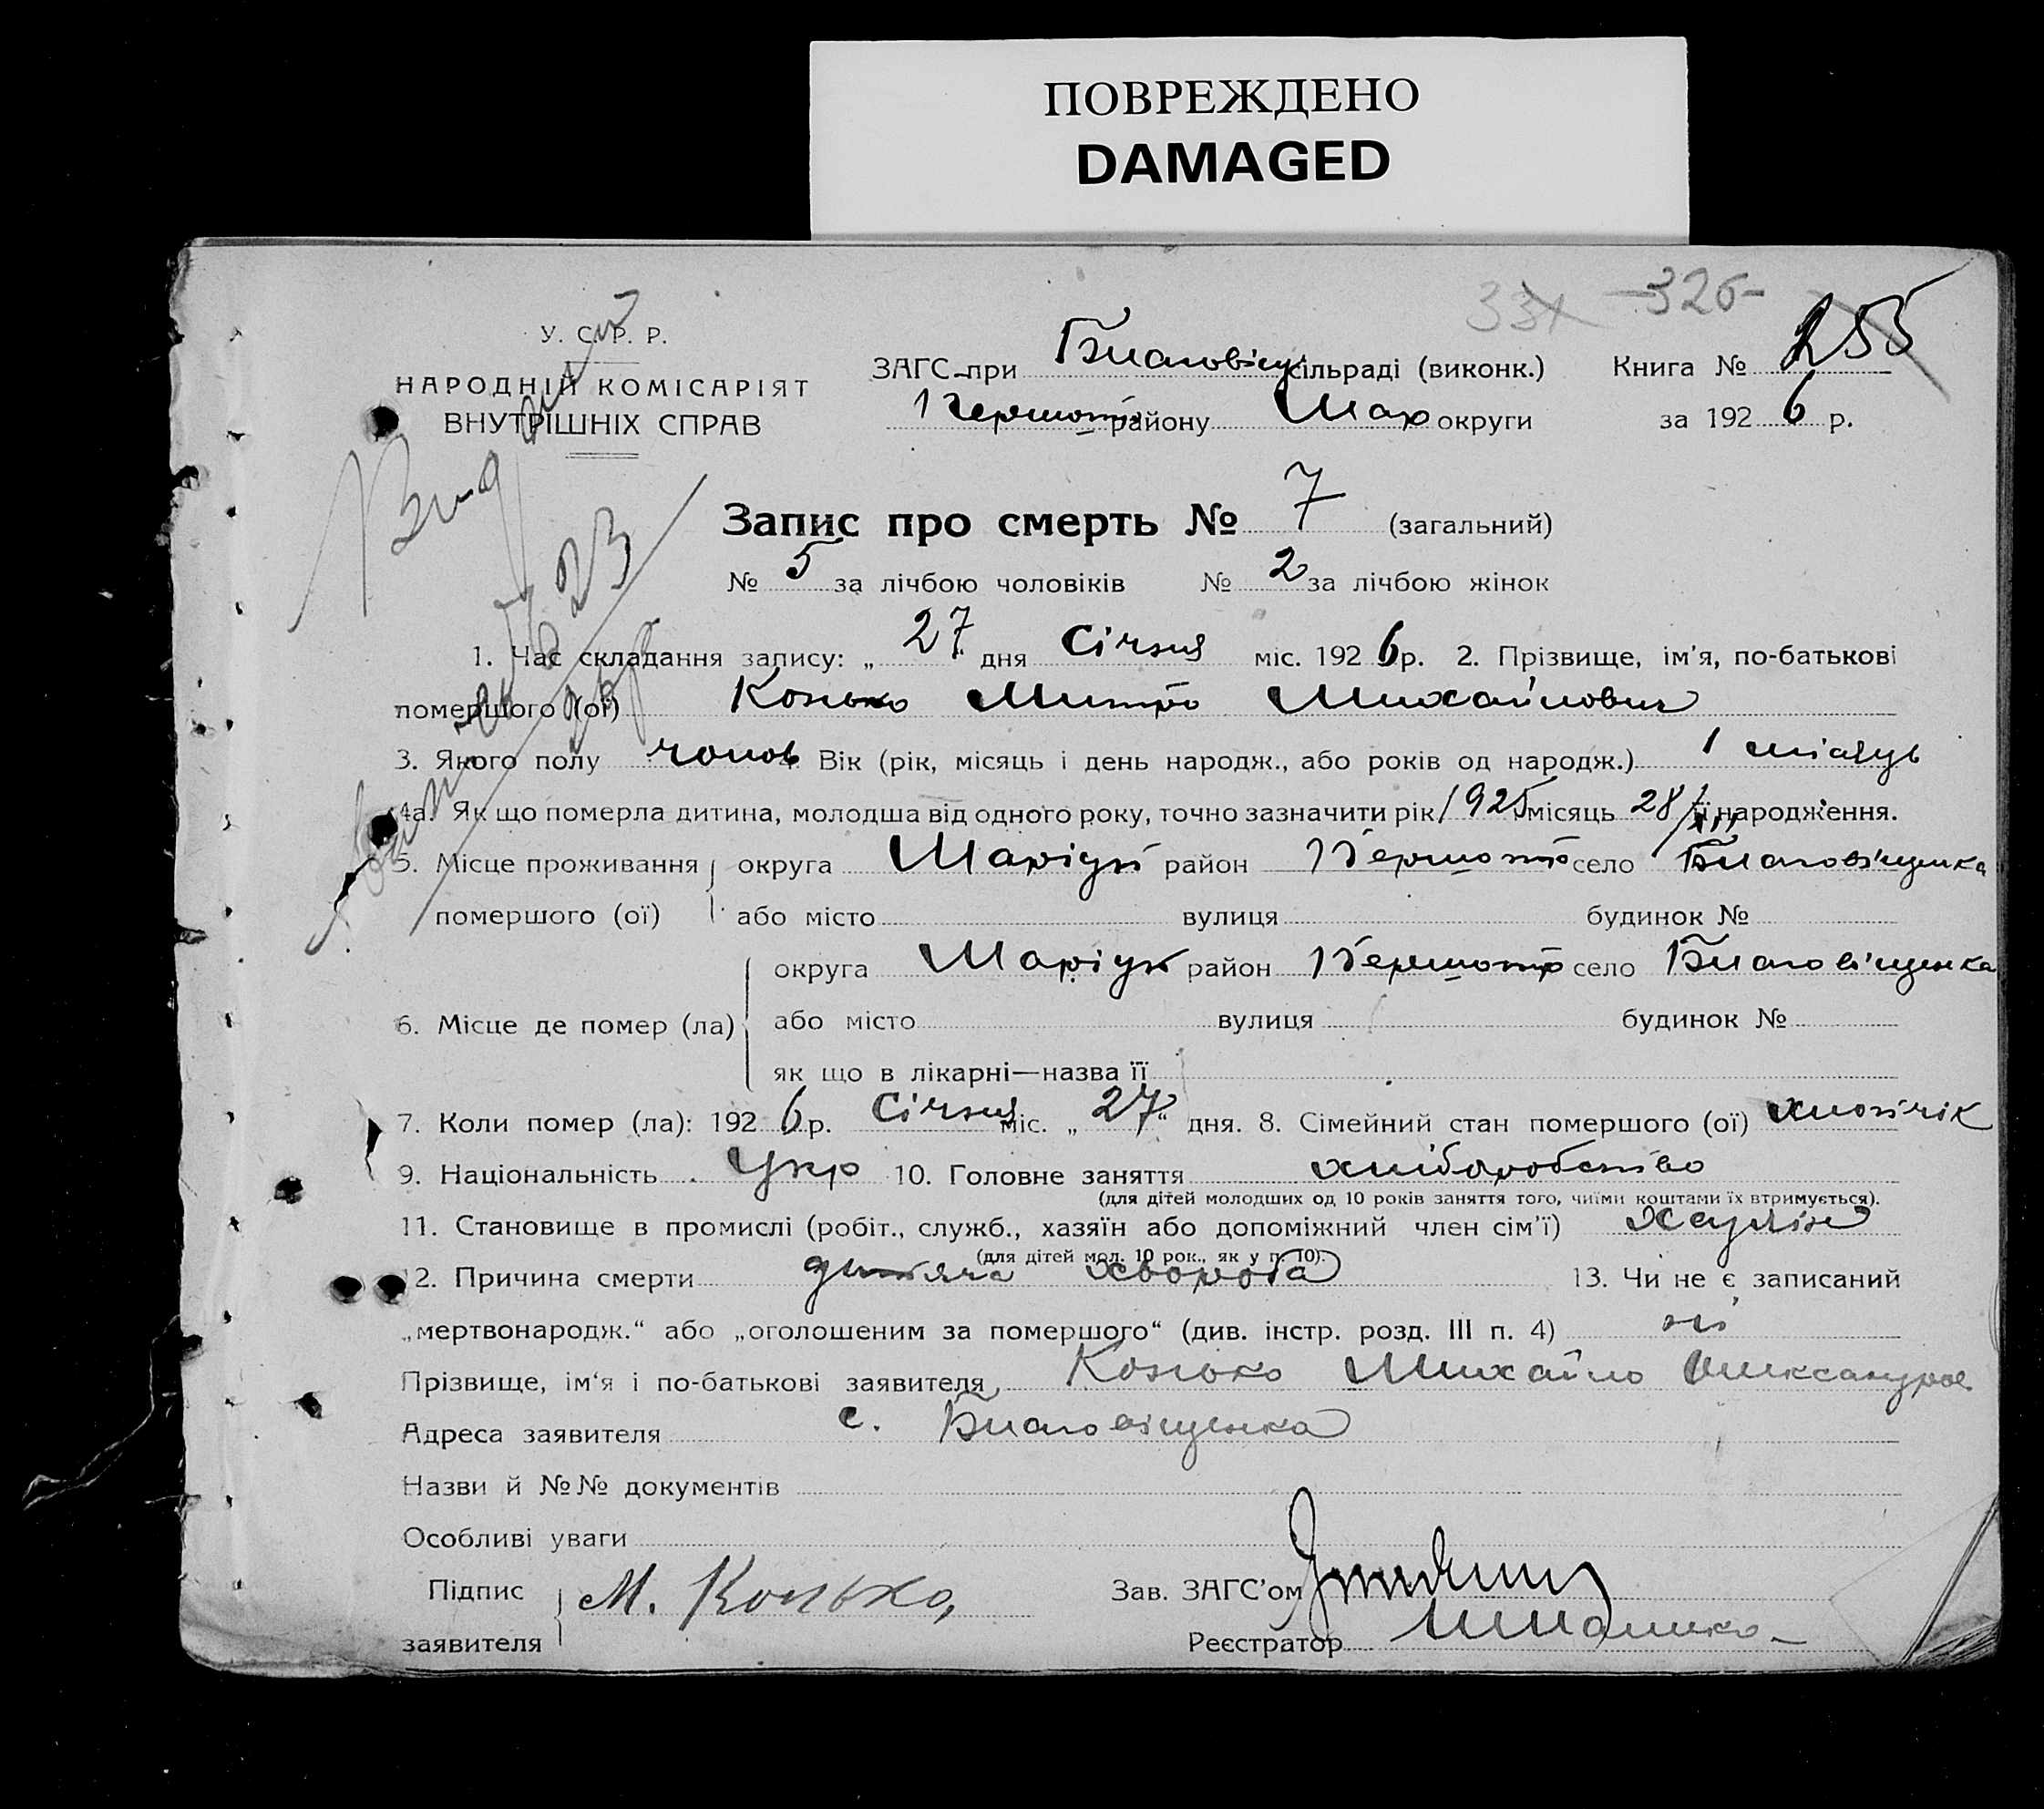 ПОВРЕЖДЕНО
DAMAGED
-326-
У. С. Р. Р.
НАРОДНІЙ КОМІСАРІЯТ
ВНУТРІШНІХ СПРАВ
ЗАГС при Благовіщ сільраді (виконк.) Книга №
району Мар округи за 1926 р.
Запис про смерть № 7 (загальний)
№ 5 за лічбою чоловіків № 2 за лічбою жінок
1. Час складання запису: „27“ дня Січня міс. 1926 р. 2. Прізвище, ім'я, по-батькові
помершого (ої) Конько Митро Михайлович
3. Якого полу чолов Вік (рік, місяць і день народж., або років од народж.) 1 місяць
4а. Як що померла дитина, молодша від одного року, точно зазначити рік 1925 місяць 28/XII її народження.
5. Місце проживання округа Маріуп район село Благовіщенка
помершого (ої) або місто вулиця будинок №
округа Маріуп район село Благовіщенка
6. Місце де помер (ла) або місто вулиця будинок №
як що в лікарні—назва її
7. Коли помер (ла): 1926 р. Січня міс. „27“ дня. 8. Сімейний стан помершого (ої) хлопчік
9. Національність Укр 10. Головне заняття хліборобство
(для дітей молодших од 10 років заняття того, чиїми коштами їх втримується).
11. Становище в промислі (робіт., служб., хазяїн або допоміжний член сім'ї) хазяїн
(для дітей мол. 10 рок., як у п. 10).
12. Причина смерти дитяча хвороба 13. Чи не є записаний
„мертвонародж.“ або „оголошеним за помершого“ (див. інстр. розд. III п. 4) ні
Прізвище, ім'я і по-батькові заявителя Конько Михайло Олександров
Адреса заявителя с. Благовіщенка
Назви й №№ документів
Особливі уваги
Підпис
заявителя М. Конько,
Зав. ЗАГС'ом
Реєстратор